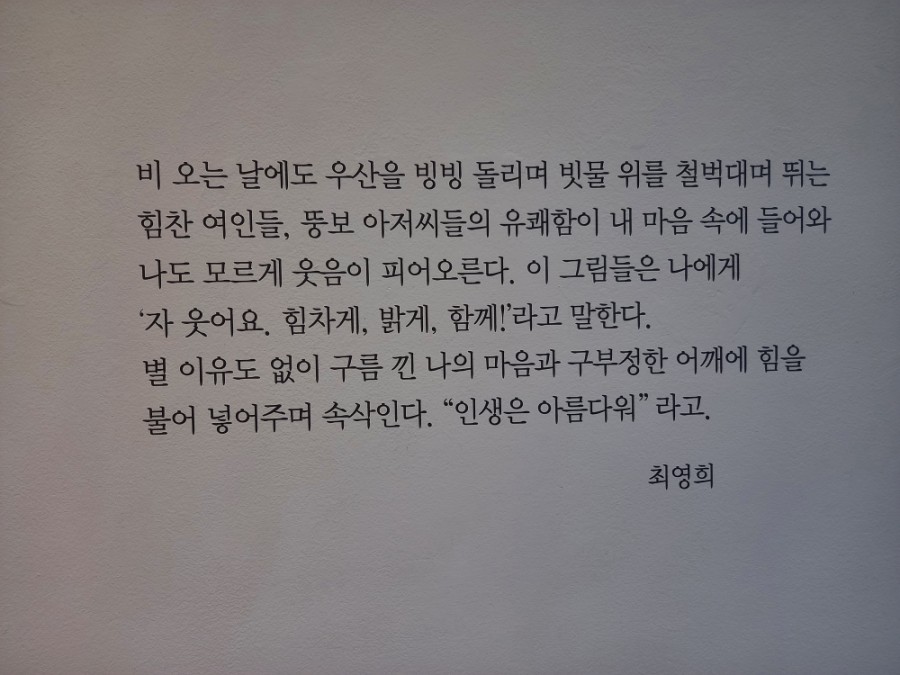 비 오는 날에도 우산을 빙빙 돌리며 빗물 위를 철벅대며 뛰는
힘찬 여인들, 뚱보 아저씨들의 유쾌함이 내 마음 속에 들어와
나도 모르게 웃음이 피어오른다. 이 그림들은 나에게
‘자 웃어요. 힘차게, 밝게, 함께!’라고 말한다.
별 이유도 없이 구름 낀 나의 마음과 구부정한 어깨에 힘을
불어 넣어주며 속삭인다. “인생은 아름다워” 라고.
최영희